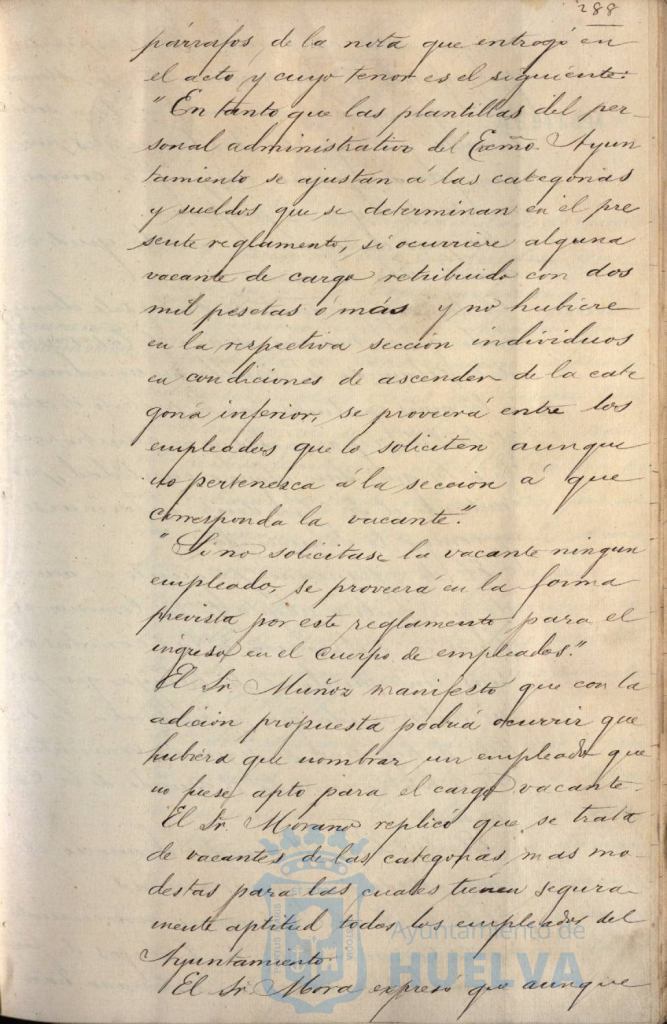 288
párrafos, de la nota que entregó en
el acto y cuyo tenor es el siguiente:
"En tanto que las plantillas del per-
sonal administrativo del Excmo. Ayun
tamiento se ajustan á las categorias
y sueldos que se determinan en el pre
sente reglamento, si ocurriere alguna
vacante de cargo retribuido con dos
mil pesetas ó más y no hubiere
en la respectiva sección individuos
en condiciones de ascender de la cate
goria inferior, se proveerá entre los
empleados que lo soliciten aunque
no pertenezca á la sección á que
corresponda la vacante".
"Si no solicitase la vacante ningun
empleado, se proveerá en la forma
prevista por este reglamento para el
ingreso en el Cuerpo de empleados."
El Sr. Muñoz manifestó que con la
adición propuesta podría ocurrir que
hubiera que nombrar un empleado que
no fuese apto para el cargo vacante.
El Sr. Morano replicó que se trata
de vacantes de las categorias mas mo-
destas para las cuales tienen segura-
mente aptitud todos los empleados del
Ayuntamiento.
El Sr. Mora expresó que aunque
Ayuntamiento de
HUELVA